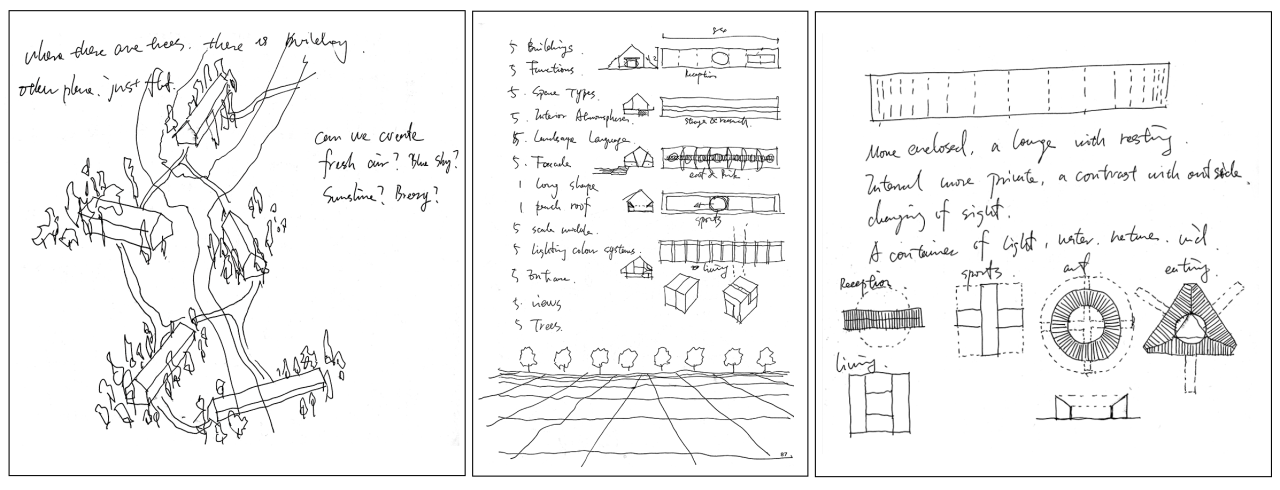 where there are trees. there is building.
other place. just flat.
can we create
fresh air? Blue sky?
Sunshine? Breezy?
5 Buildings
5 Functions
5. Space Types.
5. Interior Atmospheres
5. Landscape Language
5. Facade
1 long shape
1 pitch roof
5 scale module.
5 lighting colour systems.
5 Entrance
5 views
5 Trees.
Reception
eat & drink
sports
living
87
More enclosed, a lounge with resting.
Internal more private, a contrast with outside.
changing of sight.
A container of light, water, nature, wind.
Reception
sports
art
eating
living